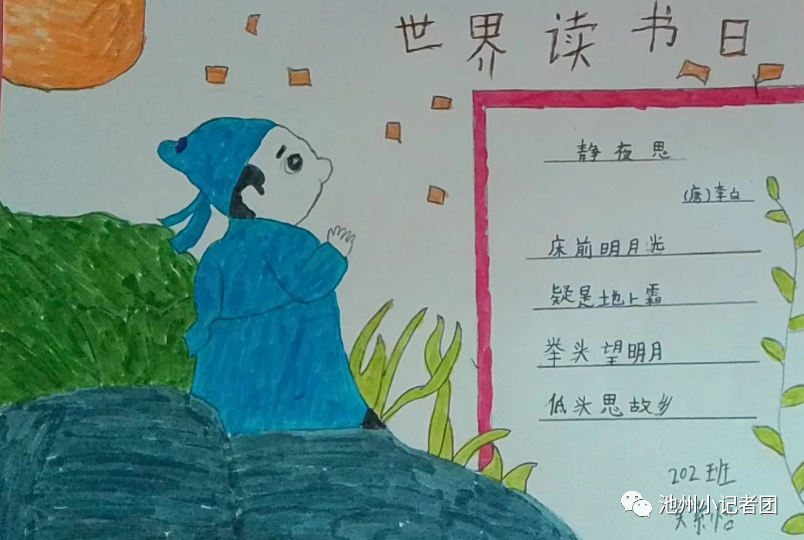 世界读书日
静夜思
(唐)李白
床前明月光
疑是地上霜
举头望明月
低头思故乡
202班
池州小记者团